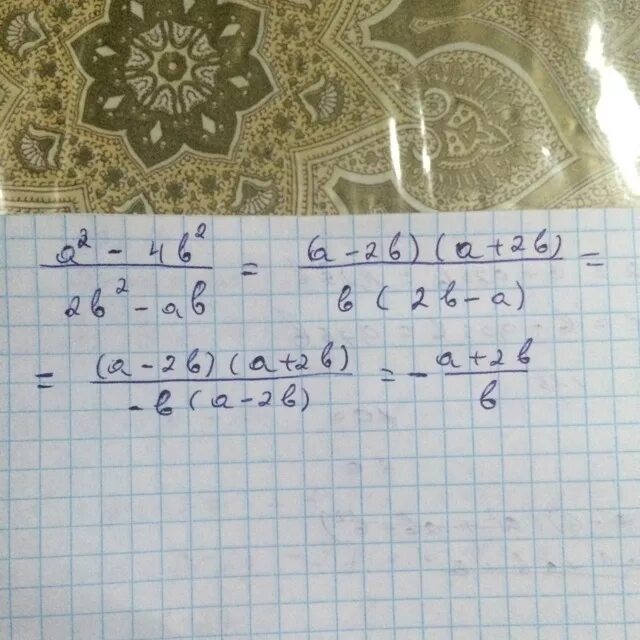 a² - 4b² / 2b² - ab = (a - 2b)(a + 2b) / b(2b - a) =
= (a - 2b)(a + 2b) / -b(a - 2b) = - a + 2b / b